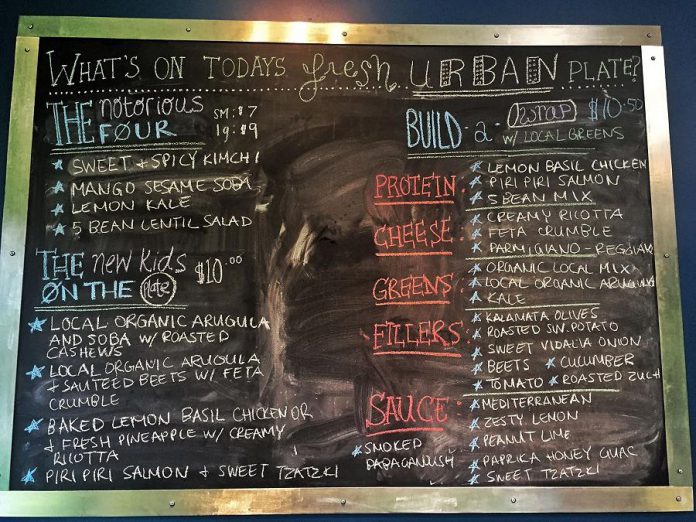 WHAT'S ON TODAYS fresh URBAN PLATE?
THE notorious FOUR
SM: $7
lg: $9
* SWEET & SPICY KIMCHI
* MANGO SESAME SOBA
* LEMON KALE
* 5 BEAN LENTIL SALAD
THE new KIDS
ON THE plate
$10.00
* LOCAL ORGANIC ARUGULA
AND SOBA W/ ROASTED
CASHEWS
* LOCAL ORGANIC ARUGULA
& SAUTEED BEETS W/ FETA
CRUMBLE
* BAKED LEMON BASIL CHICKEN OR
& FRESH PINEAPPLE W/ CREAMY
RICOTTA
* PIRI PIRI SALMON & SWEET TZATZKI
BUILD-a-wrap $10.50
W/ LOCAL GREENS
PROTEIN:
* LEMON BASIL CHICKEN
* PIRI PIRI SALMON
* 5 BEAN MIX
CHEESE:
* CREAMY RICOTTA
* FETA CRUMBLE
* PARMIGIANO-REGGIANO
GREENS:
* ORGANIC LOCAL MIX
* LOCAL ORGANIC ARUGULA
* KALE
FILLERS:
* KALAMATA OLIVES
* ROASTED SW. POTATO
* SWEET VIDALIA ONION
* BEETS * CUCUMBER
* TOMATO * ROASTED ZUCH
SAUCE:
* MEDITERRANEAN
* ZESTY LEMON
* PEANUT LIME
* PAPRIKA HONEY GUAC
* SWEET TZATZKI
* SMOKED
BABAGANUSH